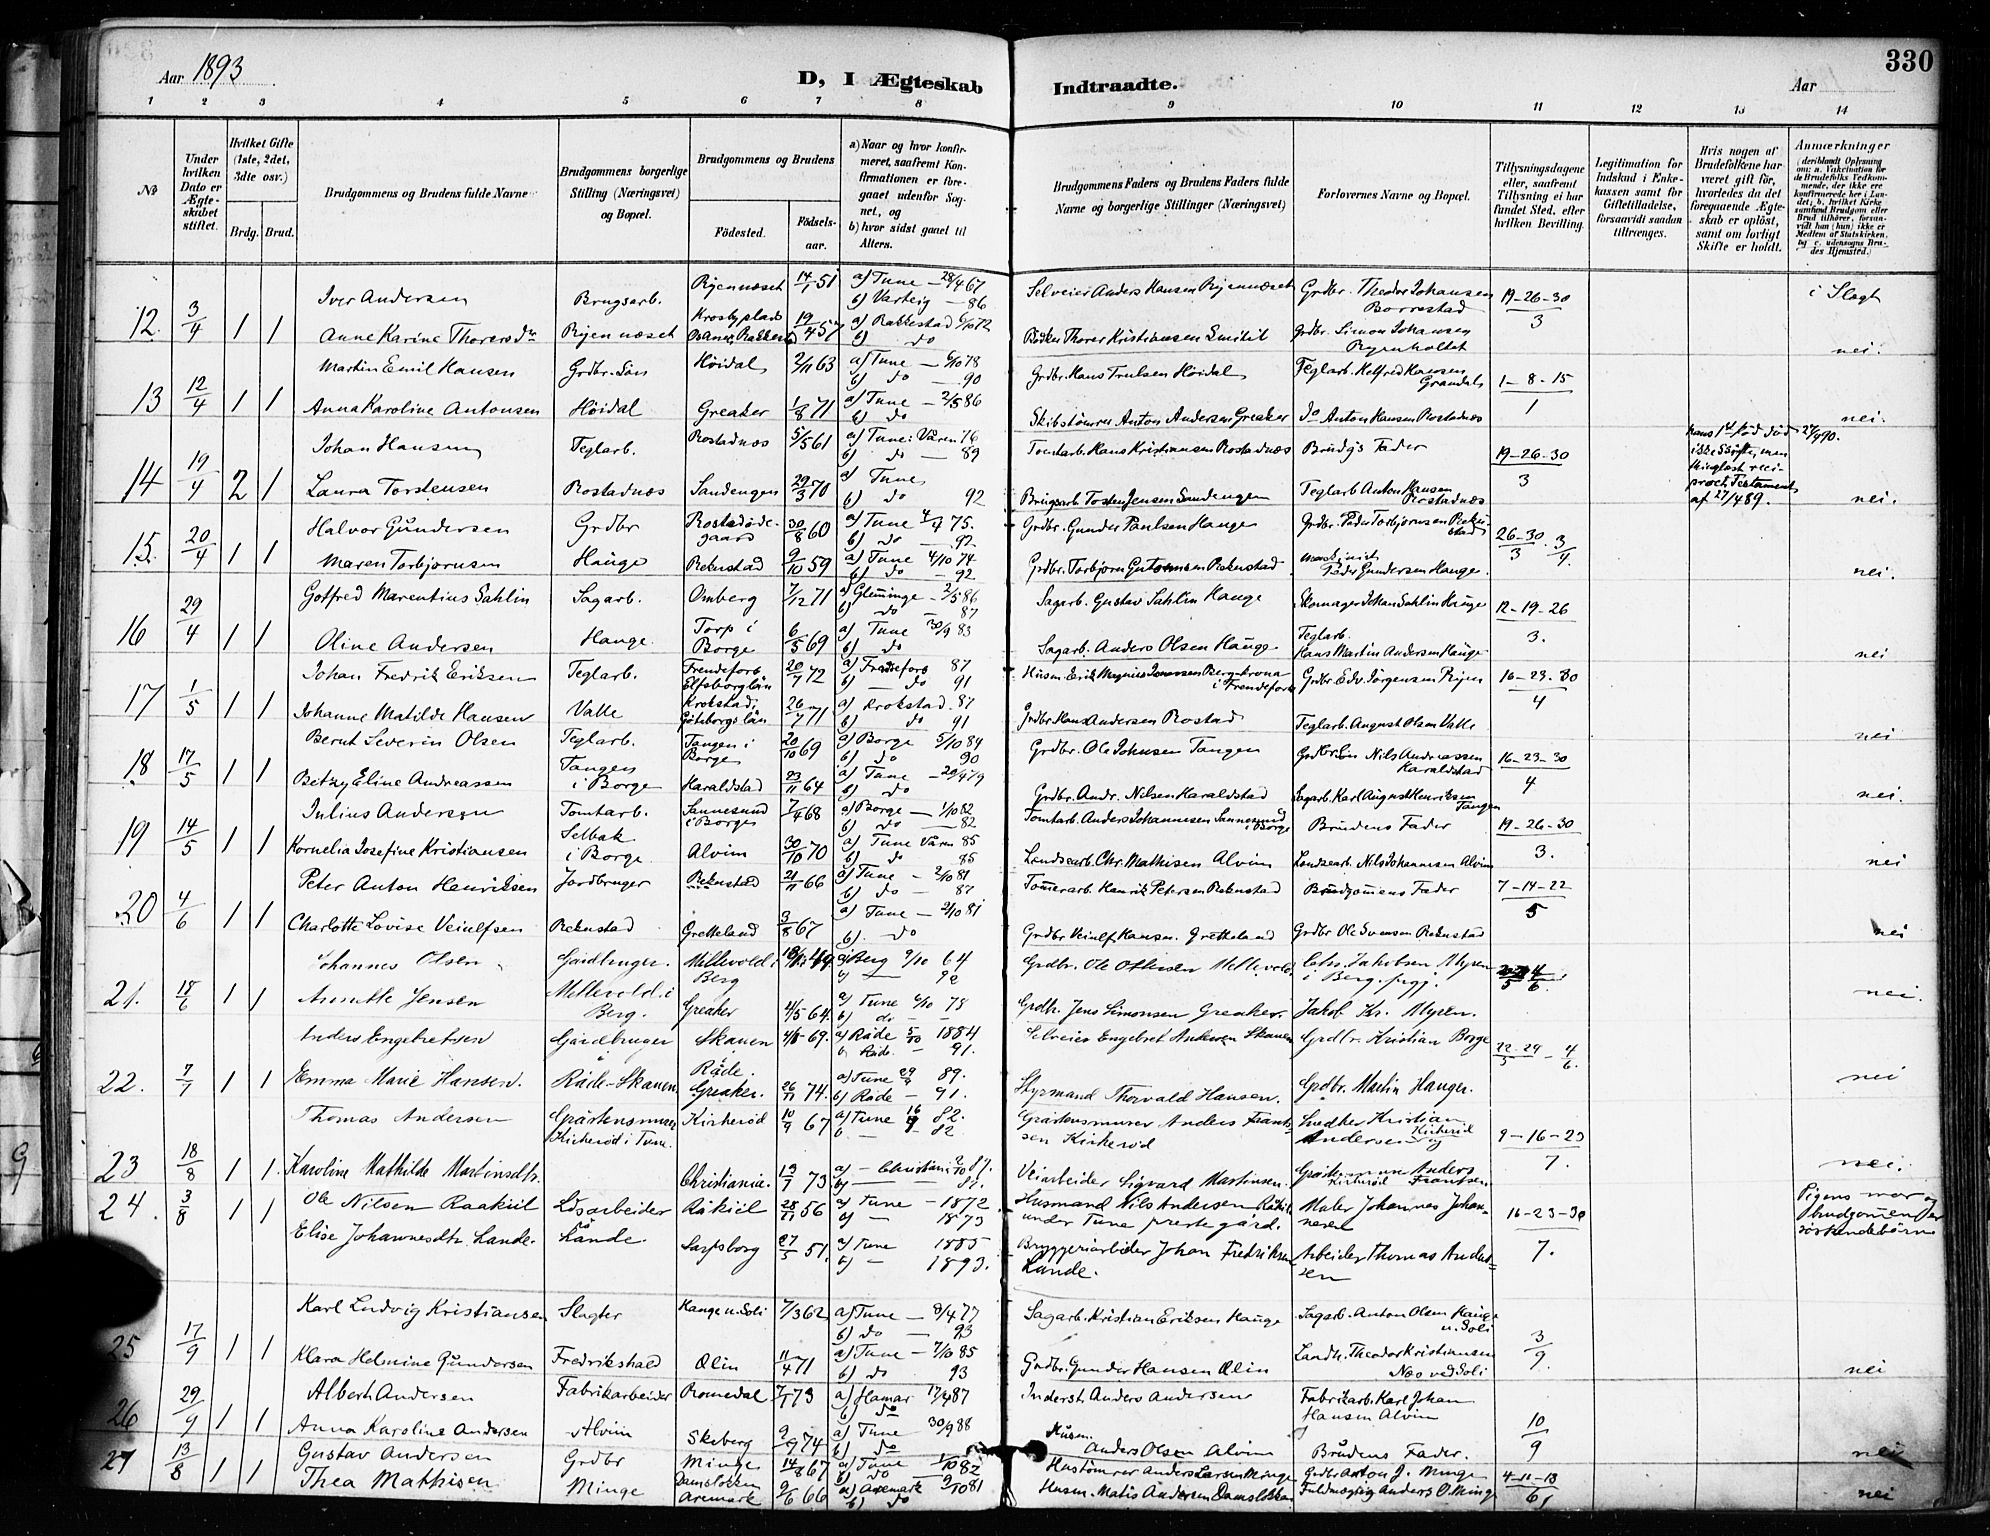 330
Aar 1893
D, I Ægteskab Indtraadte.
Aar
1 2 3 4 5 6 7 8 9 10 11 12 13 14
No
Under hvilken Dato er Ægteskabet stiftet.
Hvilket Gifte (1ste, 2det, 3dte osv.)
Brdg. Brud.
Brudgommens og Brudens fulde Navne
Brudgommens borgerlige Stilling (Næringsvei) og Bopæl.
Brudgommens og Brudens
Fødested. Fødselsaar.
a) Naar og hvor konfirmeret, saafremt Konfirmationen er foregaaet udenfor Sognet, og
b) hvor sidst gaaet til Alters.
Brudgommens Faders og Brudens Faders fulde Navne og borgerlige Stillinger (Næringsvei)
Forlovernes Navne og Bopæl.
Tillysningsdagene eller, saafremt Tillysning ei har fundet Sted, efter hvilken Bevilling.
Legitimation for Indskud i Enkekassen samt for Giftetilladelse, forsaavidt saadan tiltrænges.
Hvis nogen af Brudefolkene har været gift før, hvorledes da det foregaaende Ægteskab er opløst, samt om lovligt Skifte er holdt.
Anmærkninger
(deriblandt Oplysning om: a. Vakcination for de Brudefolks Vedkommende, der ikke ere konfirmerede her i Landet; b. hvilket Kirkesamfund Brudgom eller Brud tilhører, forsaavidt han (hun) ikke er Medlem af Statskirken, og c. udensogns Brudes Hjemsted.)
Iver Andersen Brugsarb. Ryennæset 14/1 51 a) Tune — 28/4 67 Selveier Anders Hansen Ryennæset Grdbr. Theodor Johansen 19-26-30 i Slægt
b) Varteig — 86 Borrestad 3
12. 3/4 1 1 Anne Karine Thorersdr Ryennæset 19/4 57 a) Rakkestad 6/10 72 Bødker Thorer Kristiansen Grdbr. Simon Johansen
b) do Ryenholtet nei.
Martin Emil Hansen Grdbr. Søn Høidal 2/11 63 a) Tune — 6/10 78 Grdbr. Hans Trulsen Høidal Teglarb. Hansen
b) do — 90 1-8-15
13 12/4 1 1 Anna Karoline Antonsen Høidal Greaker 1/8 71 a) Tune — 2/5 86 Skibstømrer Anton Andersen Greaker do Anton Hansen Rostadnæs 1
b) do nei.
Johan Hansen Teglarb. Rostadnæs 5/5 61 a) Tune Våren 76 Tomtarb. Hans Kristiansen Rostadnæs Brudgs Fader 19-26-30 hans 1st død 27/4 90.
b) do — 89 3 ikke Skifte, men
14 19/4 2 1 Laura Torstensen Rostadnæs Sandengen 29/3 70 a) Tune Brugsarb. Torsten Jensen Sandengen Teglarb Anton Hansen thinglæst reci
b) do 92 Rostadnæs proct Testament
af 27/4 89. nei.
Halvor Gundersen Grdbr Rostadødegaard 30/8 60 a) Tune 4/4 75. Grdbr. Gunder Paulsen Hauge Grdbr. Torbjørnsen 26-30 3
b) do — 92 3 4
15. 20/4 1 1 Maren Torbjørnsen Hauge Reknstad 9/10 59 a) Tune 4/10 74 Grdbr. Torbjørn Reknstad Gundersen Hauge.
b) do — 92 nei.
Gotfred Marentius Sahlin Sagarb. Omberg 7/12 71 a) Glemminge — 2/5 86 Sagarb. Gustav Sahlin Hauge Skomager Johan Sahlin Hauge 12-19-26
b) do 87
16 29/4 1 1 Oline Andersen Hauge. Torp i Borge 6/5 69 a) Tune 30/9 83 Sagarb. Anders Olsen Hauge Teglarb. Hans Martin Andersen Hauge 3.
b) do nei
Johan Fredrik Eriksen Teglarb. Frendefors Elfsborglän 20/7 72 a) Frendefors 87 Husm. Erik Magnus i Frendefors Grdbr. Edv. Jørgensen Ryen 16-23-30
b) — do 91 4
17 1/5 1 1 Johanne Matilde Hansen Valle Krokstad, Göteborgs län 26/7 71 a) Krokstad. 87 Grdbr. Hans Andersen Rostad Teglarb. August Olsen Valle
b) do 91 nei
Bernt Severin Olsen Teglarb. Tangen i Borge 20/10 69 a) Borge 5/10 84 Grdbr. Ole Johnsen Tangen Nils Andreassen Haraldstad 16-23-30
b) do 90 4
18 17/5 1 1 Betzy Eline Andreassen Tangen i Borge Haraldstad 23/11 64 a) Tune — 20/4 79 Grdbr. Andr. Nilsen Haraldstad Sagarb. Karl August Henriksen Tangen
b) do nei.
Julius Andersen Tomtarb. Sannesund i Borge 7/4 68 a) Borge — 1/10 82 Tomtarb. Anders Johannesen Sannesund i Borge Brudens Fader 19-26-30
b) do — 82 3.
19 14/5 1 1 Kornelia Josefine Kristiansen Selbak i Borge. Alvim 30/10 70 a) Tune Våren 85 Landsarb. Chr. Mathisen Alvim Landsarb. Nils Johannesen Alvim
b) do 85 nei
Peter Anton Henriksen Jordbruger Reknstad 21/11 66 a) Tune — 2/10 81 Tømmerarb. Henrik Petersen Reknstad Brudgommens Fader 7-14-22
b) do — 87 5
20 4/6 1 1 Charlotte Lovise Veiulfsen Reknstad Gretteland 3/8 67 a) Tune — 2/10 81 Grdbr Veiulf Hansen Gretteland Grdbr Ole Svensen Reknstad
b) do nei
Johannes Olsen Gårdbruger. Mellevold i Berg 49 a) Berg 9/10 64 Grdbr. Ole Mellevold i Berg Chr. Jakobsen Myren 4/6
b) — 92
21. 18/6 1 1 Annette Jensen Mellevold i Berg. Greaker 4/5 64. a) Tune 6/10 78 Grdbr. Jens Simonsen Greaker. Jakob Kr. Myren. nei.
b) do
Anders Engebretsen Gårdbruger Skauen 69. a) Råde 5/10 1884 Selveier Engebret Andersen Skauen Grdbr. Kristian Borge 22-29 - 4
b. Råde. — 91. 5 6.
22. 7/7 1 1 Emma Marie Hansen. Råde-Skauen Råde. Greaker. 26/11 74. a) Tune 29/9 89. Styrmand Thorvald Hansen. Grdbr. Martin Hauger. nei
b) Råde — 91.
Thomas Andersen Gråstensmurer Kirkerød i Tune. Kirkerød 10/9 67 a) Tune 82. Gråstensmurer Anders Frantsen Kirkerød Snedker Kristian Andersen Kirkerød og 9-16-23
b — 82 7.
23 18/8 1 1. Karoline Mathilde Martinsdtr. Christiania. 13/7 73 a) — Christiania Veiarbeider Sigvard Martinsen. Anders Frantsen. nei.
24. 3/8 1 1 Ole Nilsen Raakiil Ldsarbeider Råkiil 28/11 56 a) Tune — 1872 Husmand Nils Andersen Råkiil under Tune prestegård. Maler Johannes Johannesen 16-23-30 Pigens mor og
b) — 1873 7. brudgommen er
Elise Johannesdtr. Lande. Lande. Sarpsborg 27/5 51. a) Tune 1885 Bryggeriarbeider Johan Fredriksen Lande. Arbeider Thomas Andersen søskendebørn
b) — 1893.
Karl Ludvig Kristiansen Slagter Hauge u. Soli 7/3 62 a) Tune — 8/4 77 Sagarb. Kristian Eriksen Hauge Sagarb. Anton Olsen Hauge u. Soli
b) do — 93 3/9.
25 17/9 1 1 Klara Helmine Gundersen Fredrikshald Ølin 11/4 71 a) Tune — 7/10 85 Grdbr. Gunder Hansen Ølin Landh. Theodor Kristiansen Næs ved Soli
b) do 93 nei
Albert Andersen Fabrikarbeider Romedal 7/1 73 a) Hamar 17/4 87 Inderst. Anders Andersen Fabrikarb. Karl Johan Hansen Alvim
b) do 10/9
26 29/9 1 1 Anna Karoline Andersen Alvim Skeberg 9/9 74 a) Tune 30/9 88 Husm. Anders Olsen Alvim Brudens Fader.
b) do nei
27 13/8 1 1 Gustav Andersen Grdbr Minge 14/8 67 a) Tune 1/10 82 Hustømrer Anders Larsen Minge Grdbr Anton J. Minge 4-11-18
b) do 6
Thea Mathisen Minge Damsløkken Aremark 9/6 66 a) Aremark 9/10 81 Husm. Matis Andersen Damsløkken Fuldmægtig Anders O. Minge nei
b) do